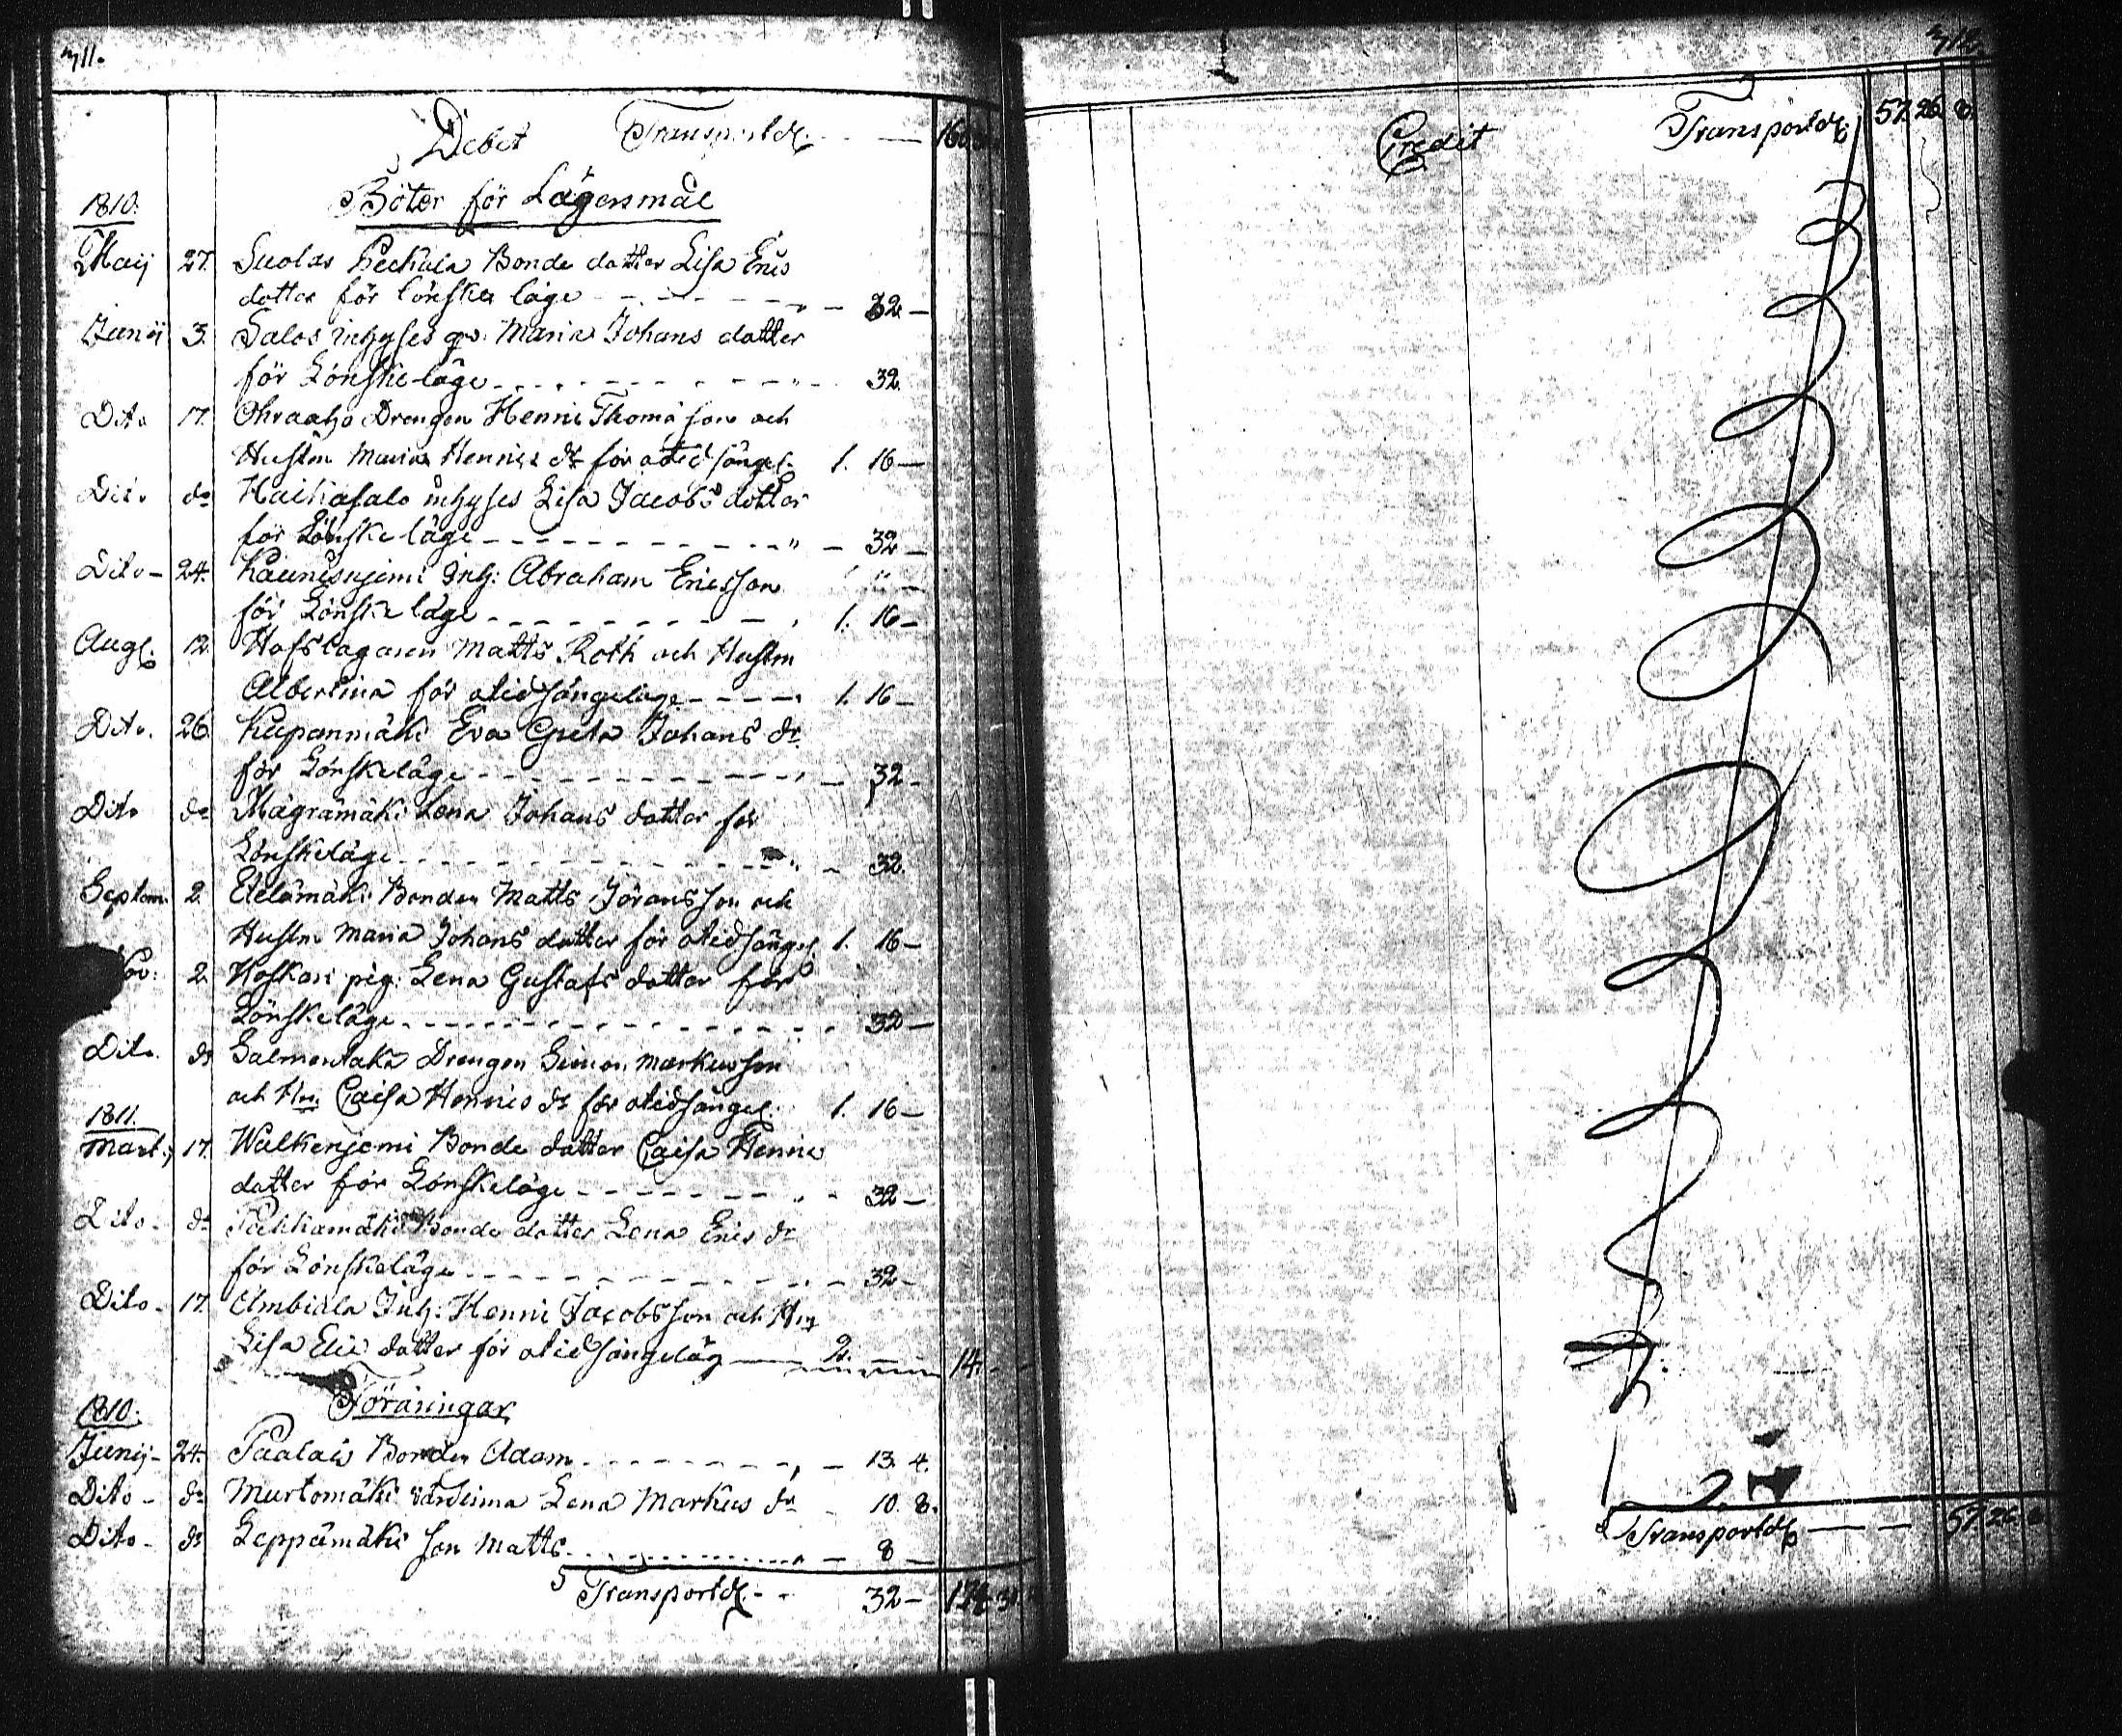 711.
Debet Transporld
1810. Böter för Lägersmål
Maij 27. Suolas Bonde dotter Lisa Erics
dotter för lönska läge 32
Junij 3. Salos inhyses qv. Maria Johans dotter
för Lönskeläge 32.
Dito 17. Drengen Henric Thomasson och
Hustrn Maria Henrics dr för otid sängel. 1. 16
Dito do Haihasalo inhyses Lisa Jacobs dotter
för Lönske läge 32
Dito 24. Kaunisnjemi Inh: Abraham Ericsson
för Lönske läge 1. 16
Aug. 12. Hofslagaren Matts Roth och Hustrn
Albertina för otidsängeläge 1. 16
Dito. 26. Kupanmäki Eva Greta Johans dr
för Lönskeläge 32
Dito do Mägrämäki Lena Johans dotter för
Lönskeläge 32.
Septem. 2. Etelämäki Bonden Matts Göransson och
Hustrn Maria Johans dotter för otidsängel. 1. 16
Nov: 2. Koskari pig: Lena Gustafs dotter för
Lönskeläge 32
Dito. do Drengen Simon Markusson
och Hn. Caisa Henrics dr för otidsängel. 1. 16
1811.
Mart: 17. Walkenjemi Bonde dotter Caisa Henric
dotter för Lönskeläge 32
Dito do Bonde dotter Lena Erics dr
för Lönskeläge 32
Dito 17. Inh: Henric Jacobsson och Hn
Lisa Elie dotter för otidsängeläg 2. 14.
1810. Föräringar
Junij 24. Paalais Bonden Adam 13. 4.
Dito do Murtomäki värdinna Lena Markus dr 10. 8.
Dito do Leppämäki son Matts 8
Transporld 32
Credit Transporld 57. 26. 8.
Transporld 57. 26